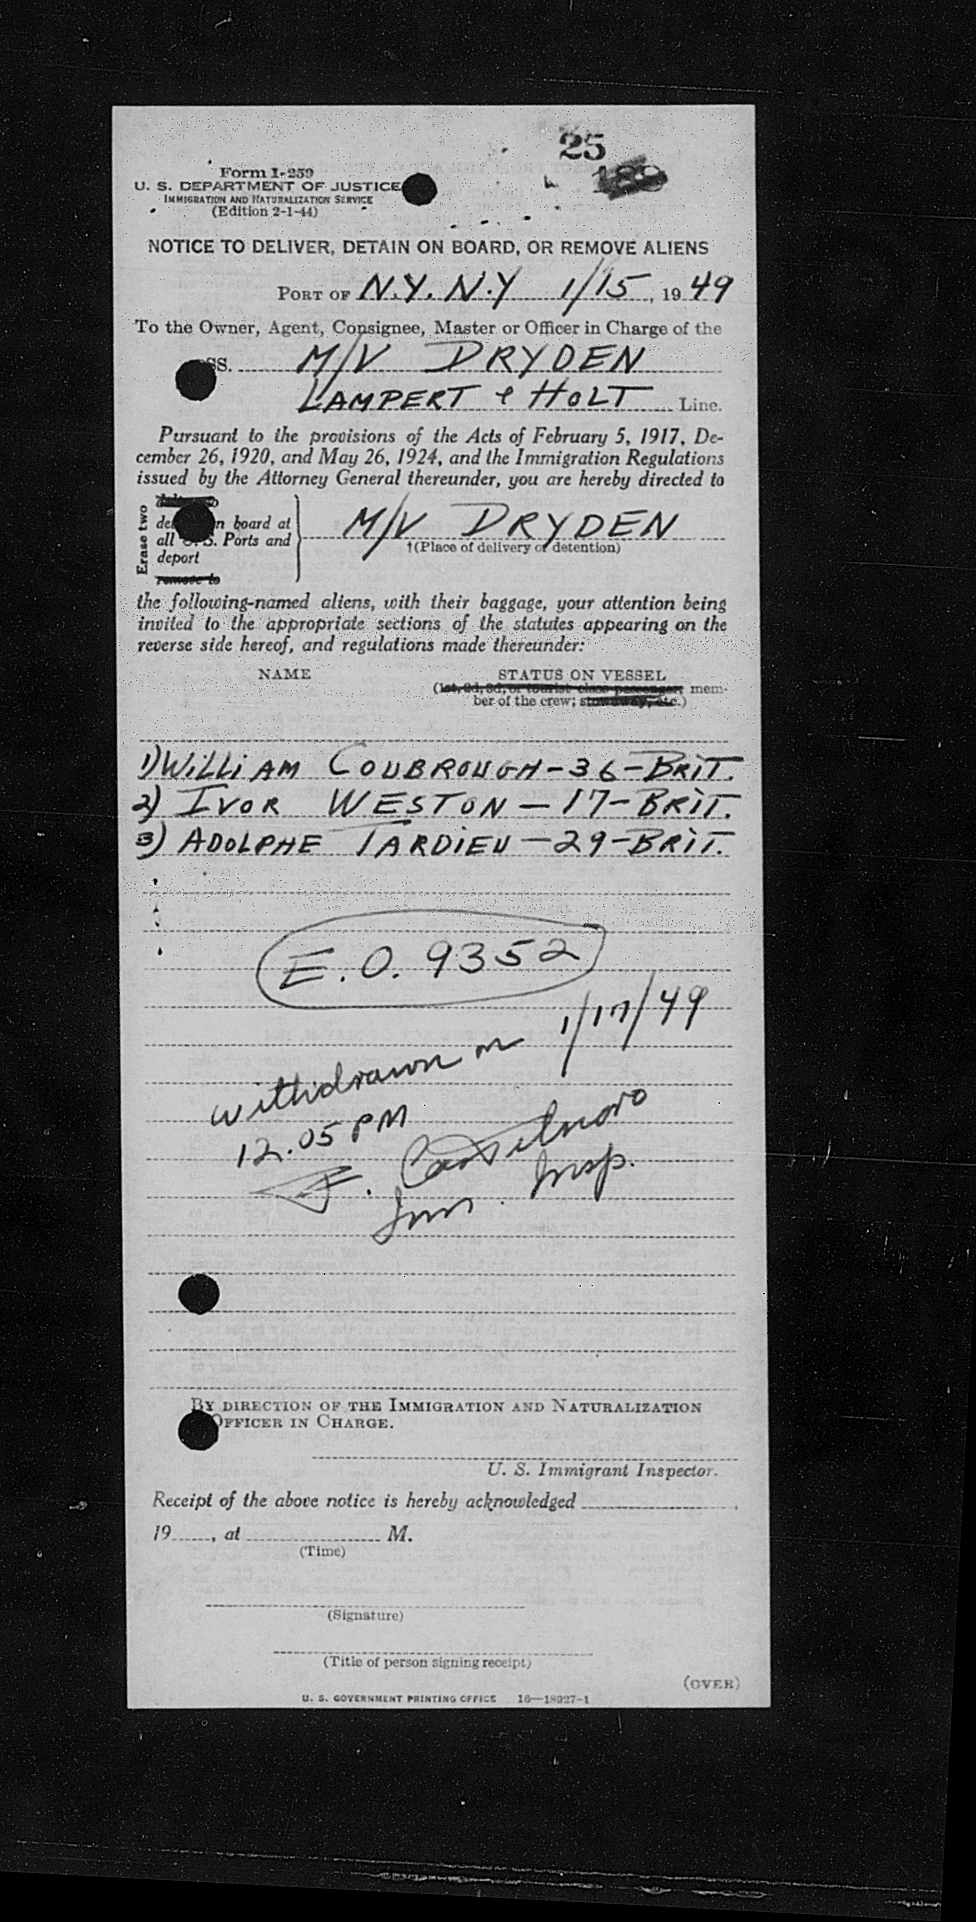 25
189
Form I-259
U. S. DEPARTMENT OF JUSTICE
IMMIGRATION AND NATURALIZATION SERVICE
(Edition 2-1-44)
NOTICE TO DELIVER, DETAIN ON BOARD, OR REMOVE ALIENS
PORT OF N.Y. N.Y 1/15, 1949
To the Owner, Agent, Consignee, Master or Officer in Charge of the
SS. M/V DRYDEN
LAMPERT & HOLT Line.
Pursuant to the provisions of the Acts of February 5, 1917, De-
cember 26, 1920, and May 26, 1924, and the Immigration Regulations
issued by the Attorney General thereunder, you are hereby directed to
Erase two
n board at
all S. Ports and
deport
remove to
M/V DRYDEN
†(Place of delivery or detention)
the following-named aliens, with their baggage, your attention being
invited to the appropriate sections of the statutes appearing on the
reverse side hereof, and regulations made thereunder:
NAME STATUS ON VESSEL
(1st, 2d, 3d, or tourist class passenger; mem-
ber of the crew; stowaway, etc.)
1) WILLIAM COUBROUGH-36-BRIT.
2) IVOR WESTON-17-BRIT.
3) ADOLPHE TARDIEU-29-BRIT.
E.O. 9352
withdrawn on 1/17/49
12.05 PM
F.
Imm. Insp.
BY DIRECTION OF THE IMMIGRATION AND NATURALIZATION
OFFICER IN CHARGE.
U. S. Immigrant Inspector.
Receipt of the above notice is hereby acknowledged
19, at M.
(Time)
(Signature)
(Title of person signing receipt)
(OVER)
U. S. GOVERNMENT PRINTING OFFICE 16—18927-1